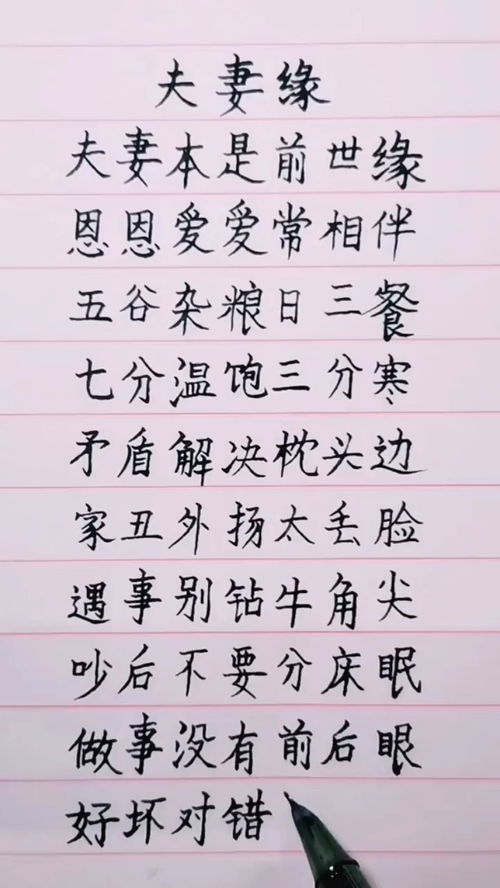 夫妻缘
夫妻本是前世缘
恩恩爱爱常相伴
五谷杂粮日三餐
七分温饱三分寒
矛盾解决枕头边
家丑外扬太丢脸
遇事别钻牛角尖
吵后不要分床眠
做事没有前后眼
好坏对错